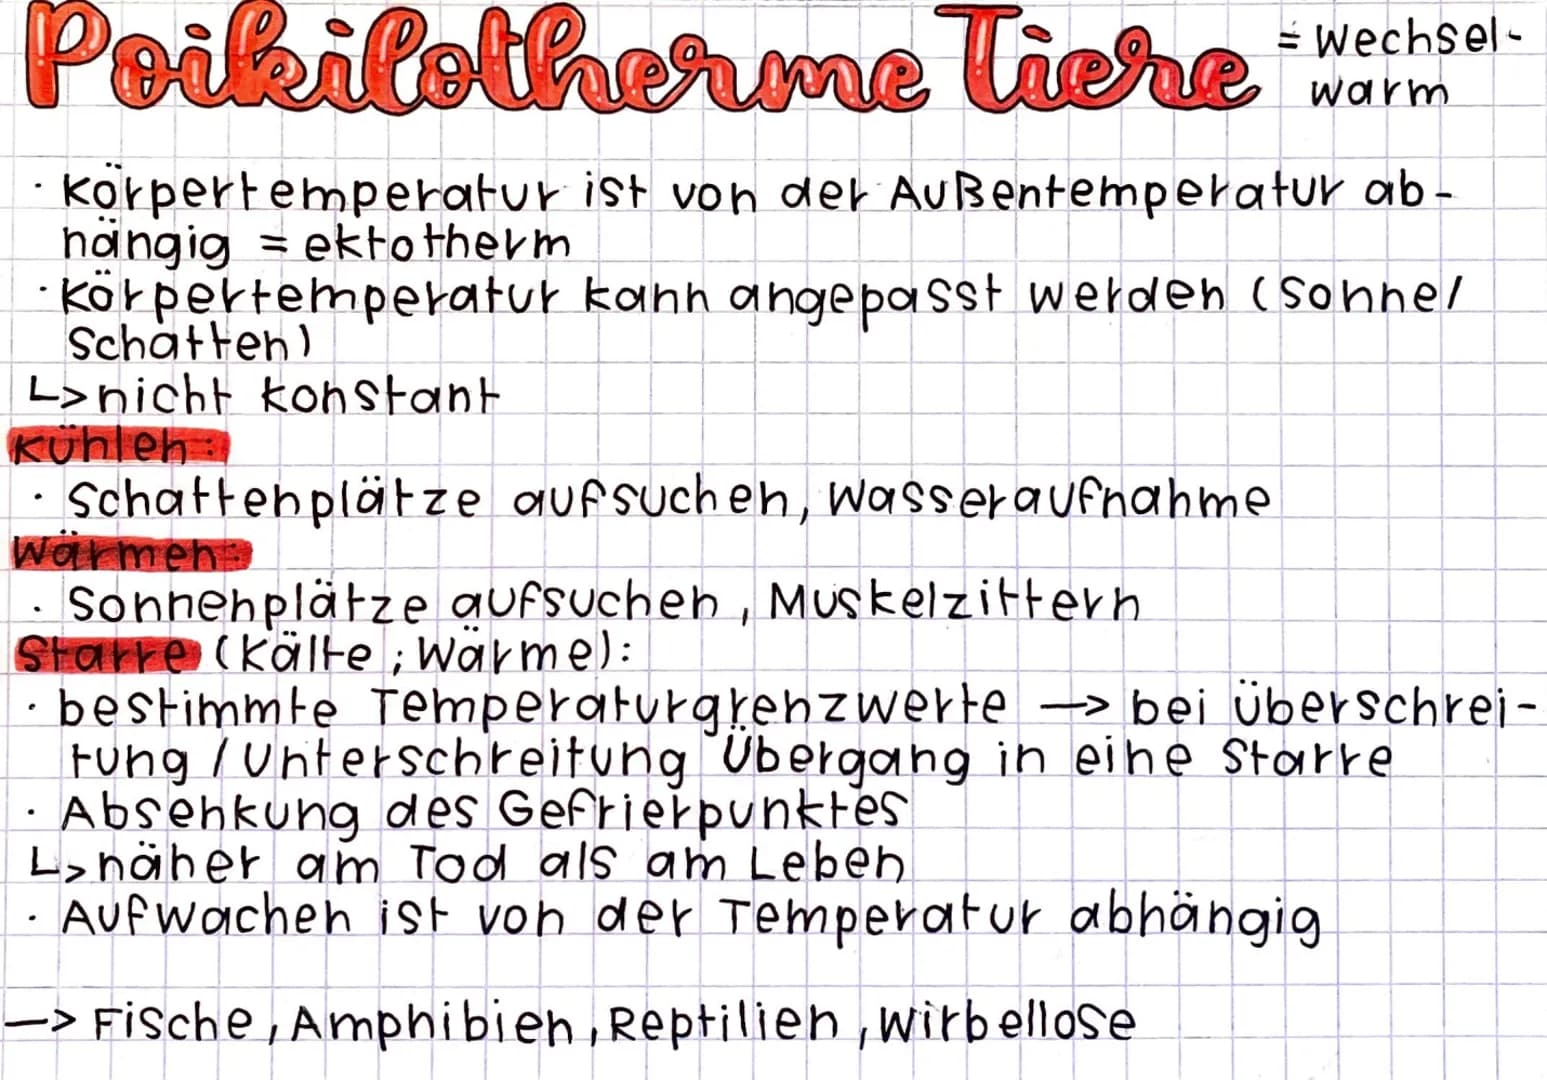 Poikilotherme Tiere = wechsel-
warm
· Körpertemperatur ist von der Außentemperatur ab-
hängig = ektotherm
· Körpertemperatur kann angepasst werden (Sonne/
Schatten)
↳ nicht konstant
Kühlen:
· Schattenplätze aufsuchen, Wasseraufnahme
Wärmen:
· Sonnenplätze aufsuchen, Muskelzittern
Starre (Kälte; Wärme):
· bestimmte Temperaturgrenzwerte → bei Überschrei-
tung / Unterschreitung Übergang in eine Starre
· Absenkung des Gefrierpunktes
↳ näher am Tod als am Leben
· Aufwachen ist von der Temperatur abhängig
→ Fische, Amphibien, Reptilien, Wirbellose